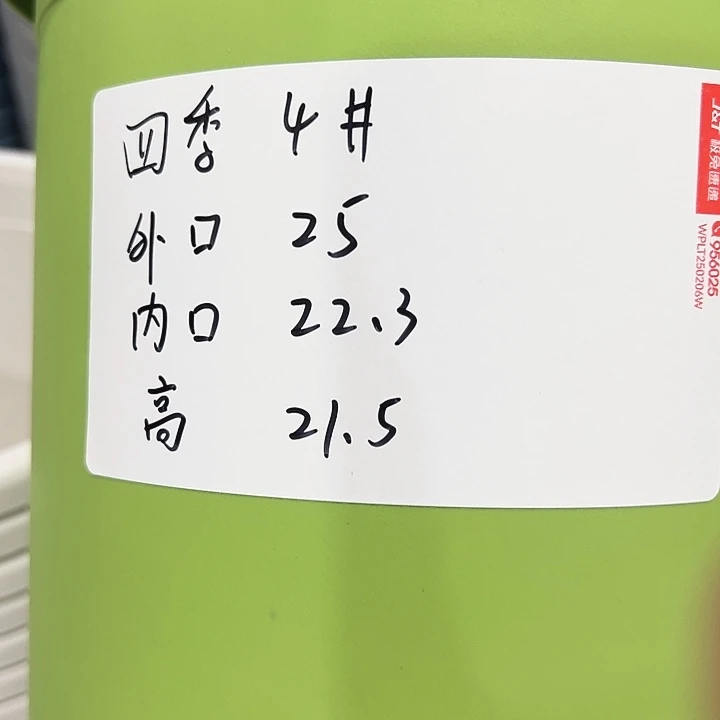 四季 4#
外口 25
内口 22.3
高 21.5
J&T 极兔速递
956025
WPLT250206W